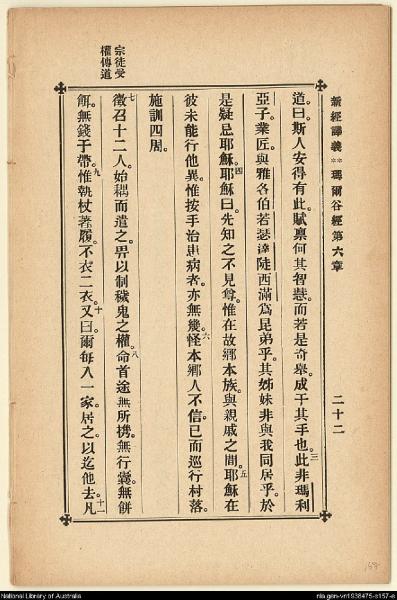 新經譯義**瑪爾谷經第六章 二十二
道。曰。斯人安得有此。賦禀何其智慧。而若是奇舉。成于其手也。三此非瑪利
亞子。業匠。與雅各伯若瑟達陡西滿爲昆弟乎。其姊妹非與我同居乎。於
是疑忌耶穌。四耶穌曰。先知之不見尊。惟在故鄉本族。與親戚之間。五耶穌在
彼未能行他異。惟按手治患病者。亦無幾。六怪本鄉人不信。已而巡行村落。
施訓四周。
宗徒受
權傳道
七徵召十二人。始耦而遣之。畀以制穢鬼之權。八命首途無所攜。無行囊。無餅
餌。無錢于帶。九惟執杖著履。不衣二衣。十又曰。爾每入一家。居之。以迄他去。十一凡
158
National Library of Australia
nla.gen-vn1938475-s157-e